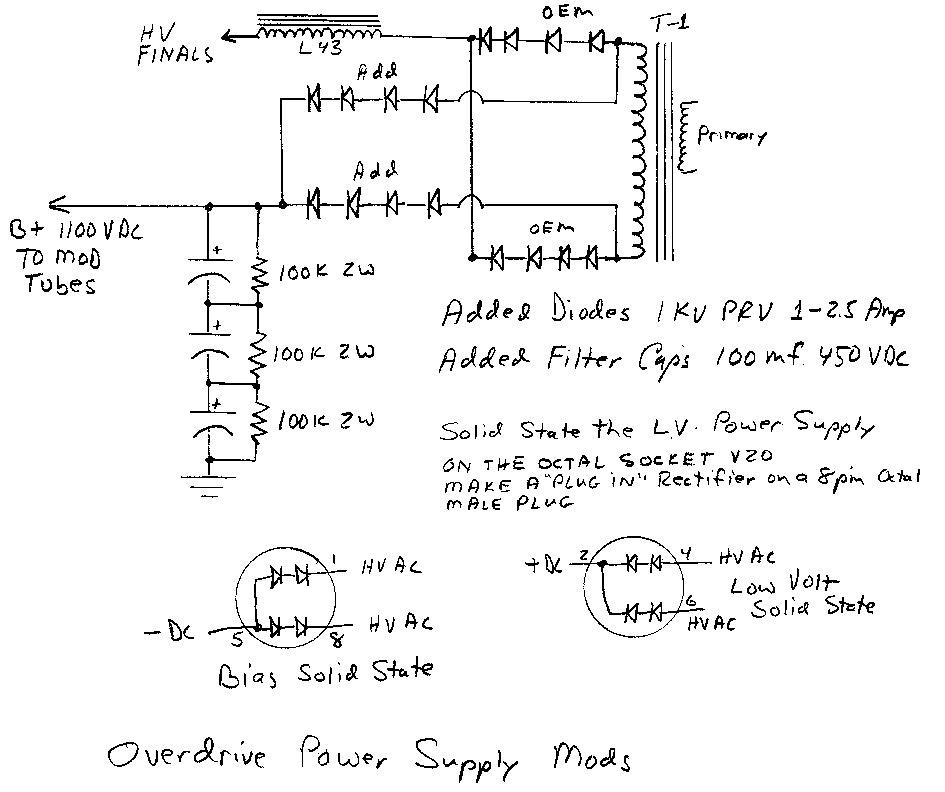 OEM
T-1
HV
FINALS
L43
Add
Primary
Add
B+ 1100 VDC
TO MOD
Tubes
OEM
+
100K 2W
+
100K 2W
+
100K 2W
Added Diodes 1 KV PRV 1-2.5 Amp
Added Filter Caps 100 mf. 450 VDC
Solid State the L.V. Power Supply
ON THE OCTAL SOCKET V20
MAKE A "PLUG IN" Rectifier on a 8 pin Octal
MALE PLUG
1 HVAC
- DC 5 8 HVAC
Bias Solid State
+DC 2 4 HVAC
6
HVAC
Low Volt
Solid State
Overdrive Power Supply Mods